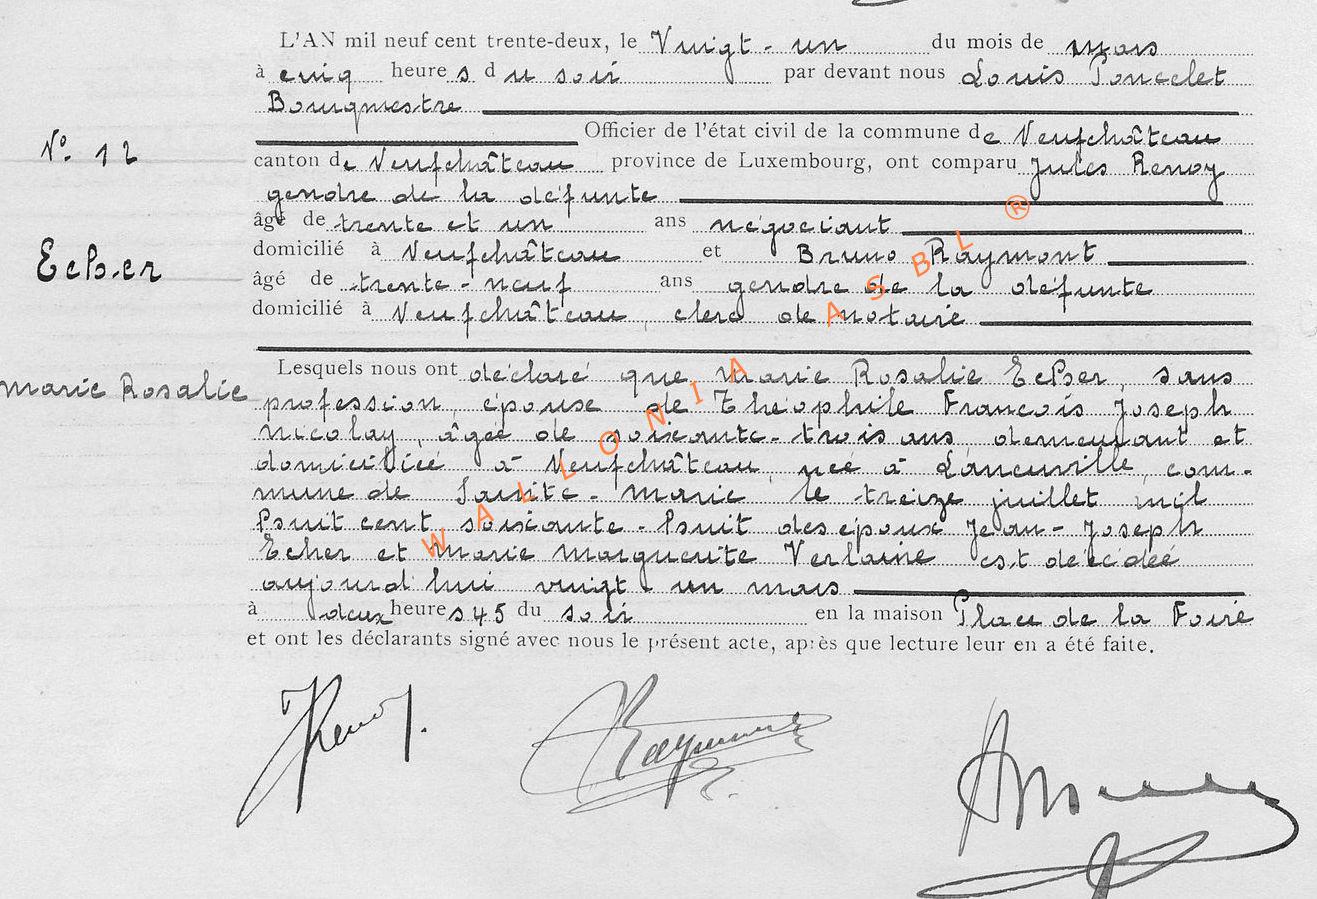 L'AN mil neuf cent trente-deux, le Vingt-un du mois de mars
à cinq heures du soir par devant nous Louis Poncelet
Bourgmestre
Officier de l'état civil de la commune de Neufchâteau
N° 12
canton de Neufchâteau province de Luxembourg, ont comparu Jules Renoy
gendre de la défunte
âgé de trente et un ans négociant
domicilié à Neufchâteau et Bruno Raymont
Echer
âgé de trente-neuf ans gendre de la défunte
domicilié à Neufchâteau, clerc de notaire
Lesquels nous ont déclaré que Marie Rosalie Echer, sans
Marie Rosalie
profession, épouse de Théophile François Joseph
Nicolay, âgée de soixante-trois ans demeurant et
domiciliée à Neufchâteau, née à Laneuville, com-
mune de Sainte-Marie le treize juillet mil
huit cent soixante-huit des époux Jean-Joseph
Echer et Marie Marguerite Verlaine est décédée
aujourd'hui vingt-un mars
à deux heures 45 du soir en la maison Place de la Foire
et ont les déclarants signé avec nous le présent acte, après que lecture leur en a été faite.
JRenoy.
Raymont
WALLONIA ASBL ®